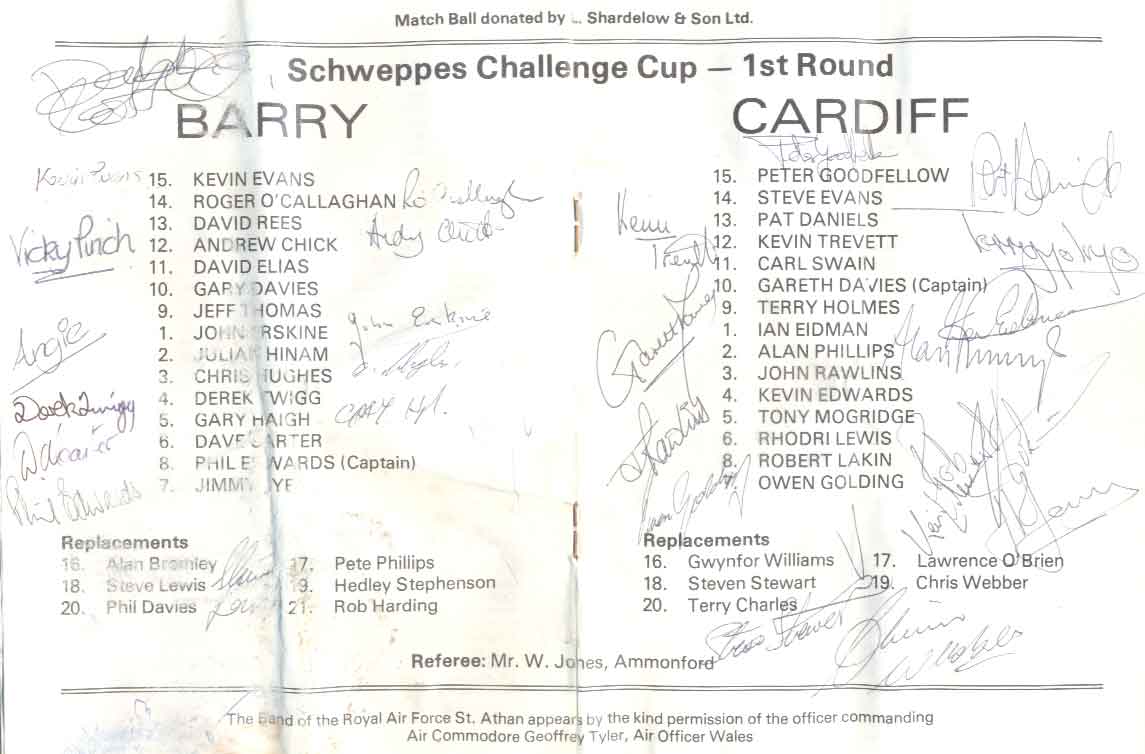 Match Ball donated by Shardelow & Son Ltd.
Schweppes Challenge Cup — 1st Round
BARRY
Kevin Evans
15. KEVIN EVANS
14. ROGER O'CALLAGHAN
13. DAVID REES
Vicky Pinch
12. ANDREW CHICK
Andy Chick
11. DAVID ELIAS
10. GARY DAVIES
9. JEFF THOMAS
1. JOHN ERSKINE
John Erskine
Angie
2. JULIAN HINAM
3. CHRIS HUGHES
4. DEREK TWIGG
Derek Twigg
5. GARY HAIGH
GARY
6. DAVE CARTER
D Carter
8. PHIL EDWARDS (Captain)
Phil Edwards
7. JIMMY
Replacements
16. Alan Bromley
17. Pete Phillips
18. Steve Lewis
19. Hedley Stephenson
20. Phil Davies
21. Rob Harding
CARDIFF
Peter Goodfellow
15. PETER GOODFELLOW
14. STEVE EVANS
13. PAT DANIELS
Pat Daniels
12. KEVIN TREVETT
Kevin
Trevett
11. CARL SWAIN
10. GARETH DAVIES (Captain)
Gareth Davies
9. TERRY HOLMES
Terry Holmes
1. IAN EIDMAN
Ian Eidman
2. ALAN PHILLIPS
3. JOHN RAWLINS
J Rawlins
4. KEVIN EDWARDS
5. TONY MOGRIDGE
6. RHODRI LEWIS
8. ROBERT LAKIN
7. OWEN GOLDING
Owen Golding
Replacements
16. Gwynfor Williams
17. Lawrence O'Brien
18. Steven Stewart
19. Chris Webber
20. Terry Charles
Chris
Webber
Referee: Mr. W. Jones, Ammonford
The Band of the Royal Air Force St. Athan appears by the kind permission of the officer commanding
Air Commodore Geoffrey Tyler, Air Officer Wales